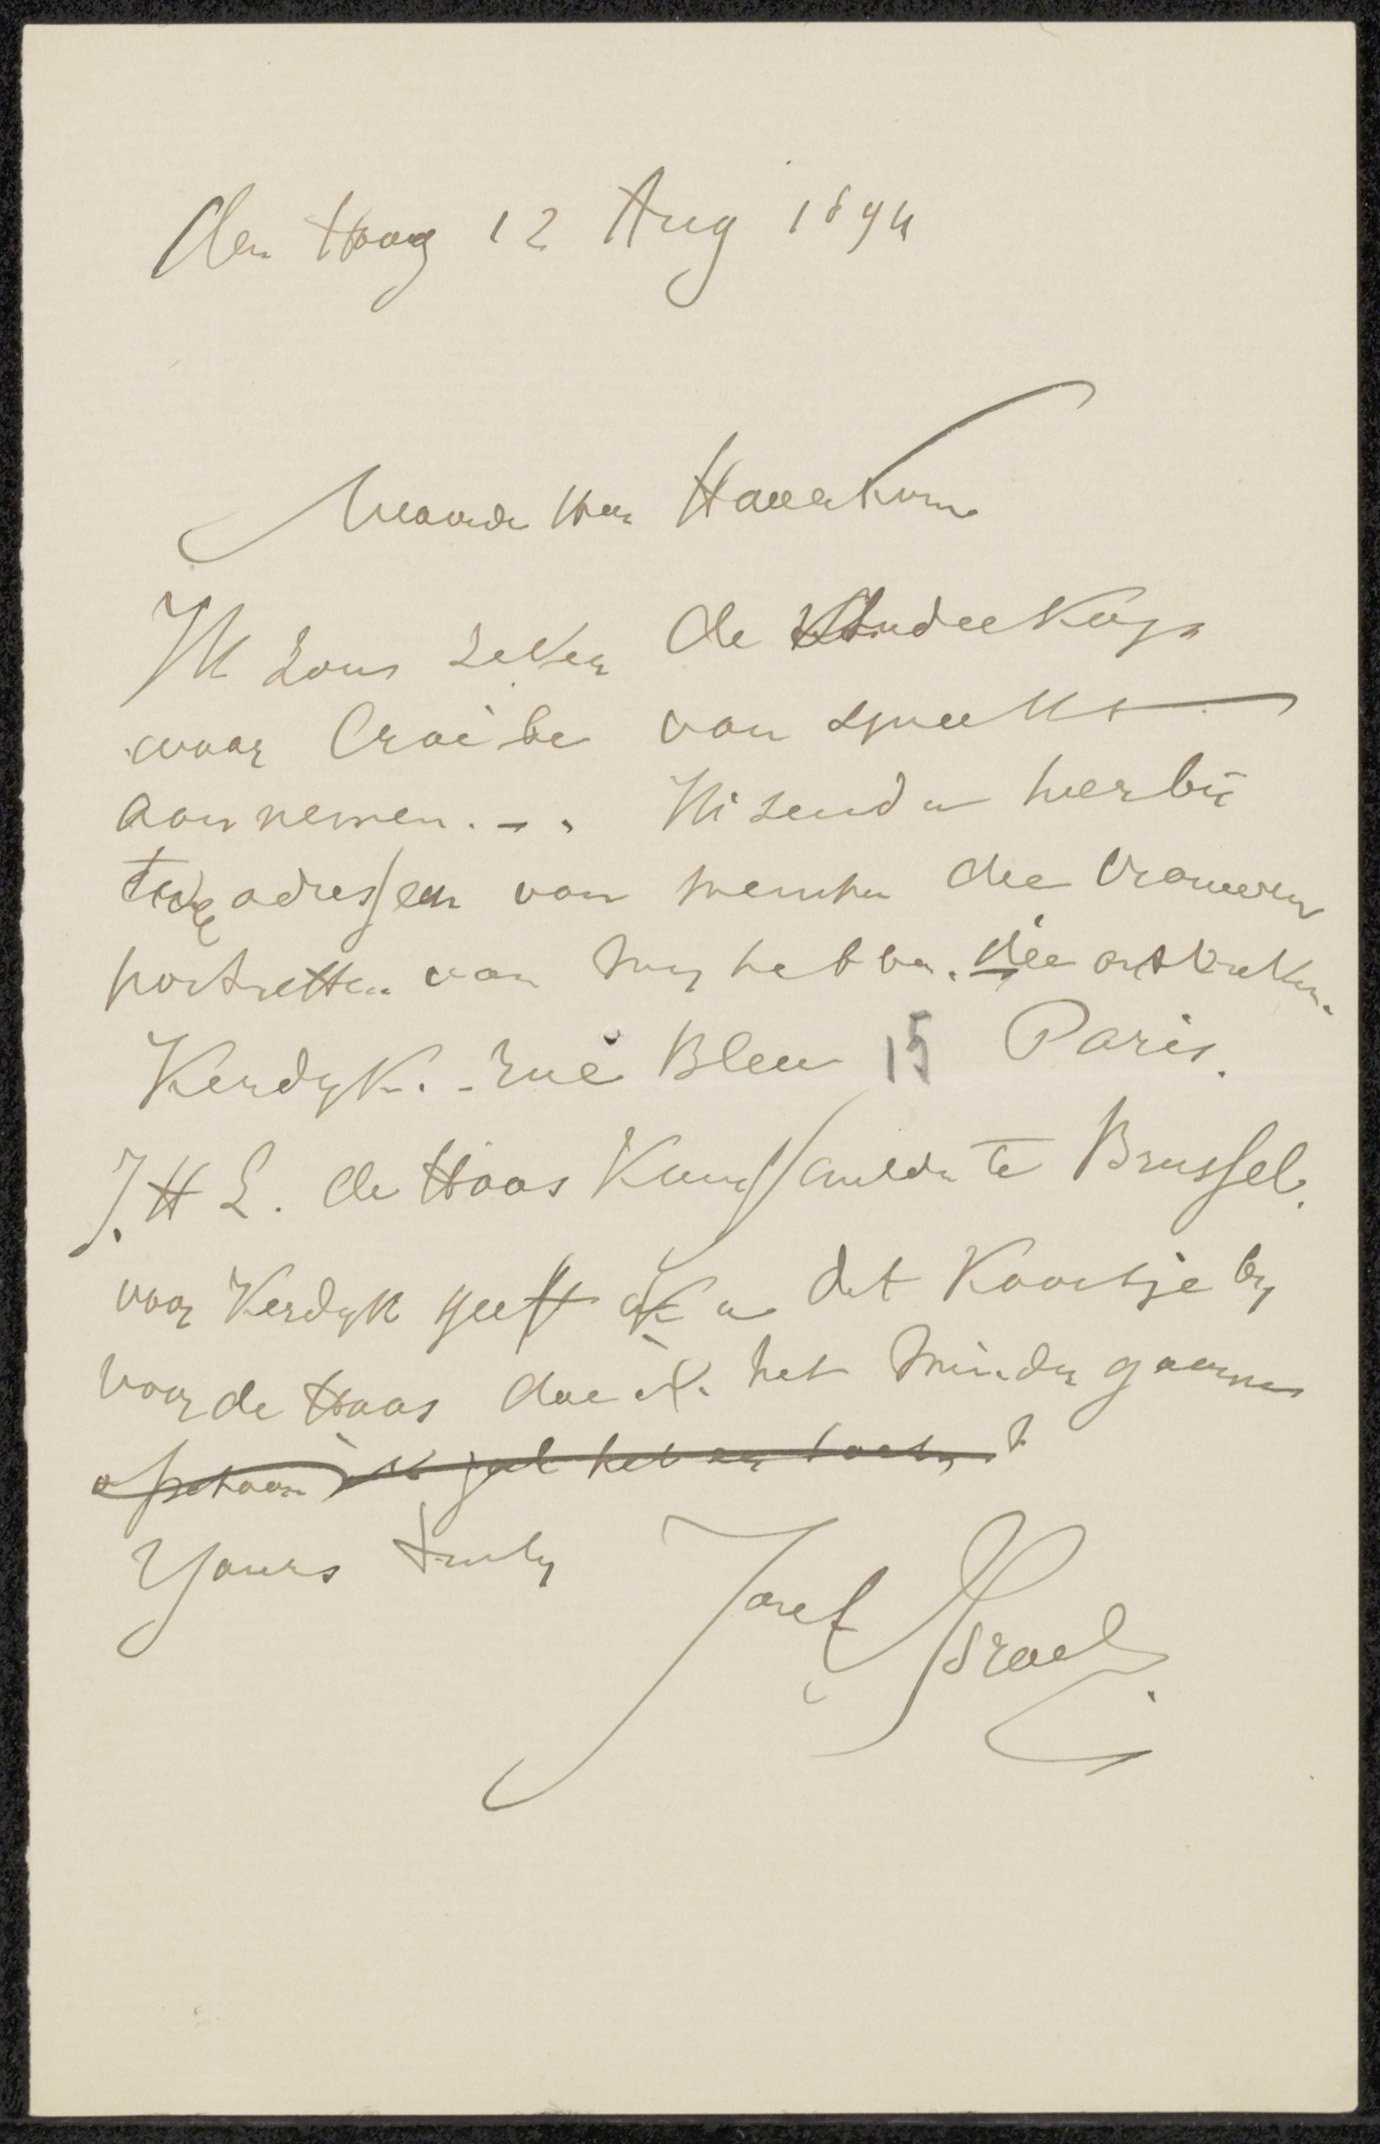 den Haag 12 Aug 1894
Waarde Heer Haverkorn
Ik zou zeker de
waar Croibe van spreekt
aannemen. - . Ik zend u hierbij
twee adressen van menschen die vrouwen
portretten van my hebben. die ontbreken.
Kerdyk. - rue Bleu 15 Paris.
J. H L. de Haas Kunstschilder te Brussel.
voor Kerdyk geeft ik u dit Kaartje by
voor de Haas doe ik het minder gaarne
ik zal het er
Yours truly Jozef Israels